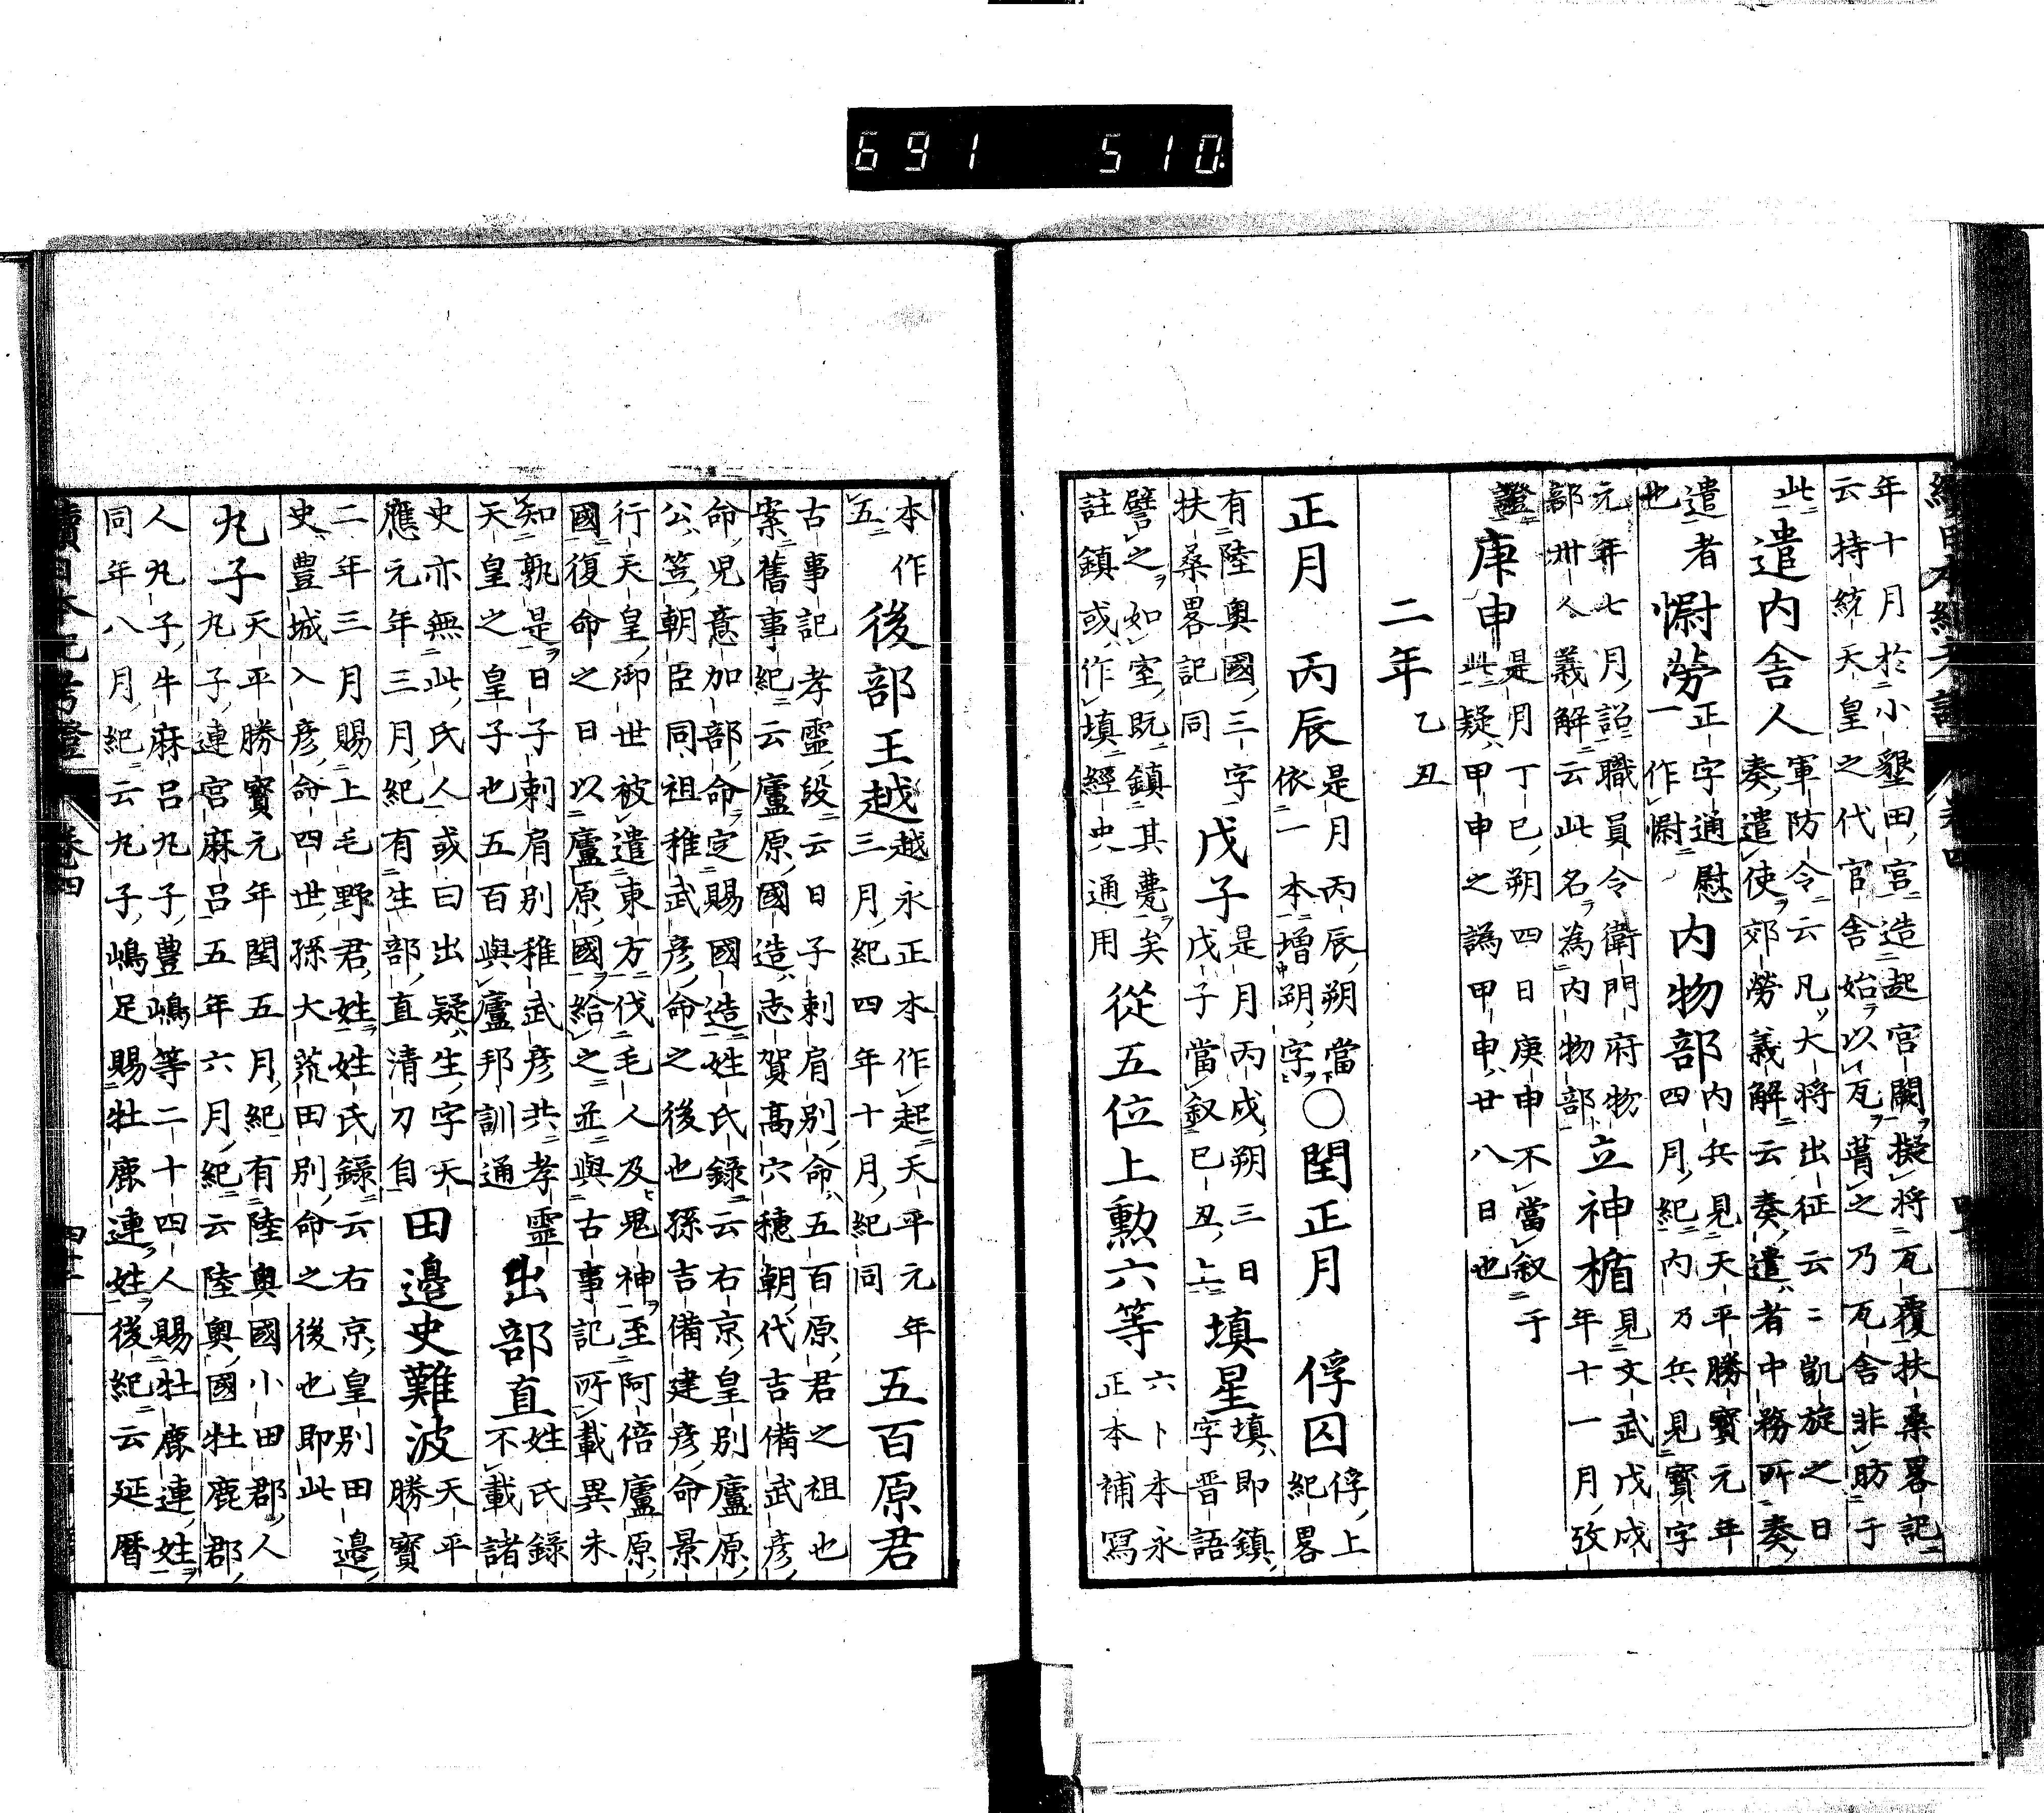 691 510
年十月於小墾田宮造起宮闕擬将瓦覆扶桑畧記
云持統天皇之代官舎始以瓦葺之乃瓦舎非昉于
此 遣内舎人 軍防令云凡大将出征云云凱旋之日
奏遣使郊勞義解云奏遣者中務所奏
遣者 慰勞 正字通慰
也 一作慰 内物部 内兵見天平勝寳元年
四月紀内乃兵見寳字
元年七月詔職員令衛門府物
部卅人義解云此名為内物部 立神楯 見文武戊戌
年十一月攷
證 庚申 是月丁巳朔四日庚申不當叙于
此疑甲申之譌甲申廿八日也
二年 乙丑
正月 丙辰 是月丙辰朔當
依一本増朔字 〇閏正月 俘囚 俘上
紀畧
有陸奥國三字
扶桑畧記同 戊子 是月丙戌朔三日
戊子當叙巳丑上 填星 填即鎮
字晋語
譬之如室既鎮其甍矣
註鎮或作填經史通用 從五位上勲六等 六卜本永
正本補寫
本作
五 後部王越 越永正本作起天平元年
三月紀四年十月紀同 五百原君
古事記孝霊段云日子刺肩別命五百原君之祖也
案舊事紀云廬原國造志賀高穴穂朝代吉備武彦
命児意加部命定賜國造姓氏録云右京皇別廬原
公笠朝臣同祖稚武彦命之後也孫吉備建彦命景
行天皇御世被遣東方伐毛人及鬼神至阿倍廬原
國復命之日以廬原國給之並與古事記所載異未
知孰是日子刺肩別稚武彦共孝霊
天皇之皇子也五百與廬邦訓通 出部直 姓氏録
不載諸
史亦無此氏人或曰出疑生字天
應元年三月紀有生部直清刀自 田邉史難波 天平
勝寳
二年三月賜上毛野君姓姓氏録云右京皇別田邉
史豊城入彦命四世孫大荒田別命之後也即此
丸子 天平勝寳元年閏五月紀有陸奥國小田郡人
丸子連宮麻呂五年六月紀云陸奥國牡鹿郡
人丸子牛麻呂丸子豊嶋等二十四人賜牡鹿連姓
同年八月紀云丸子嶋足賜牡鹿連姓後紀云延暦